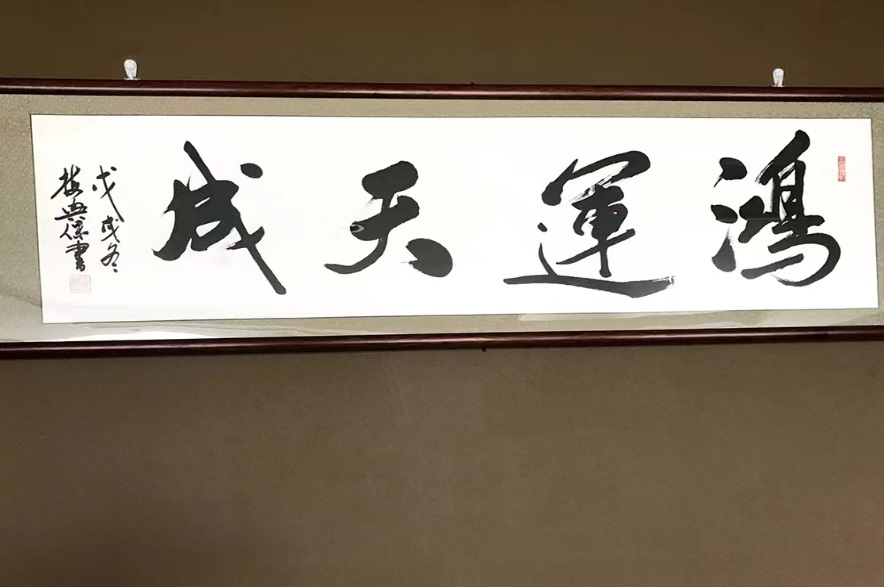 鴻運天成
戊戌冬